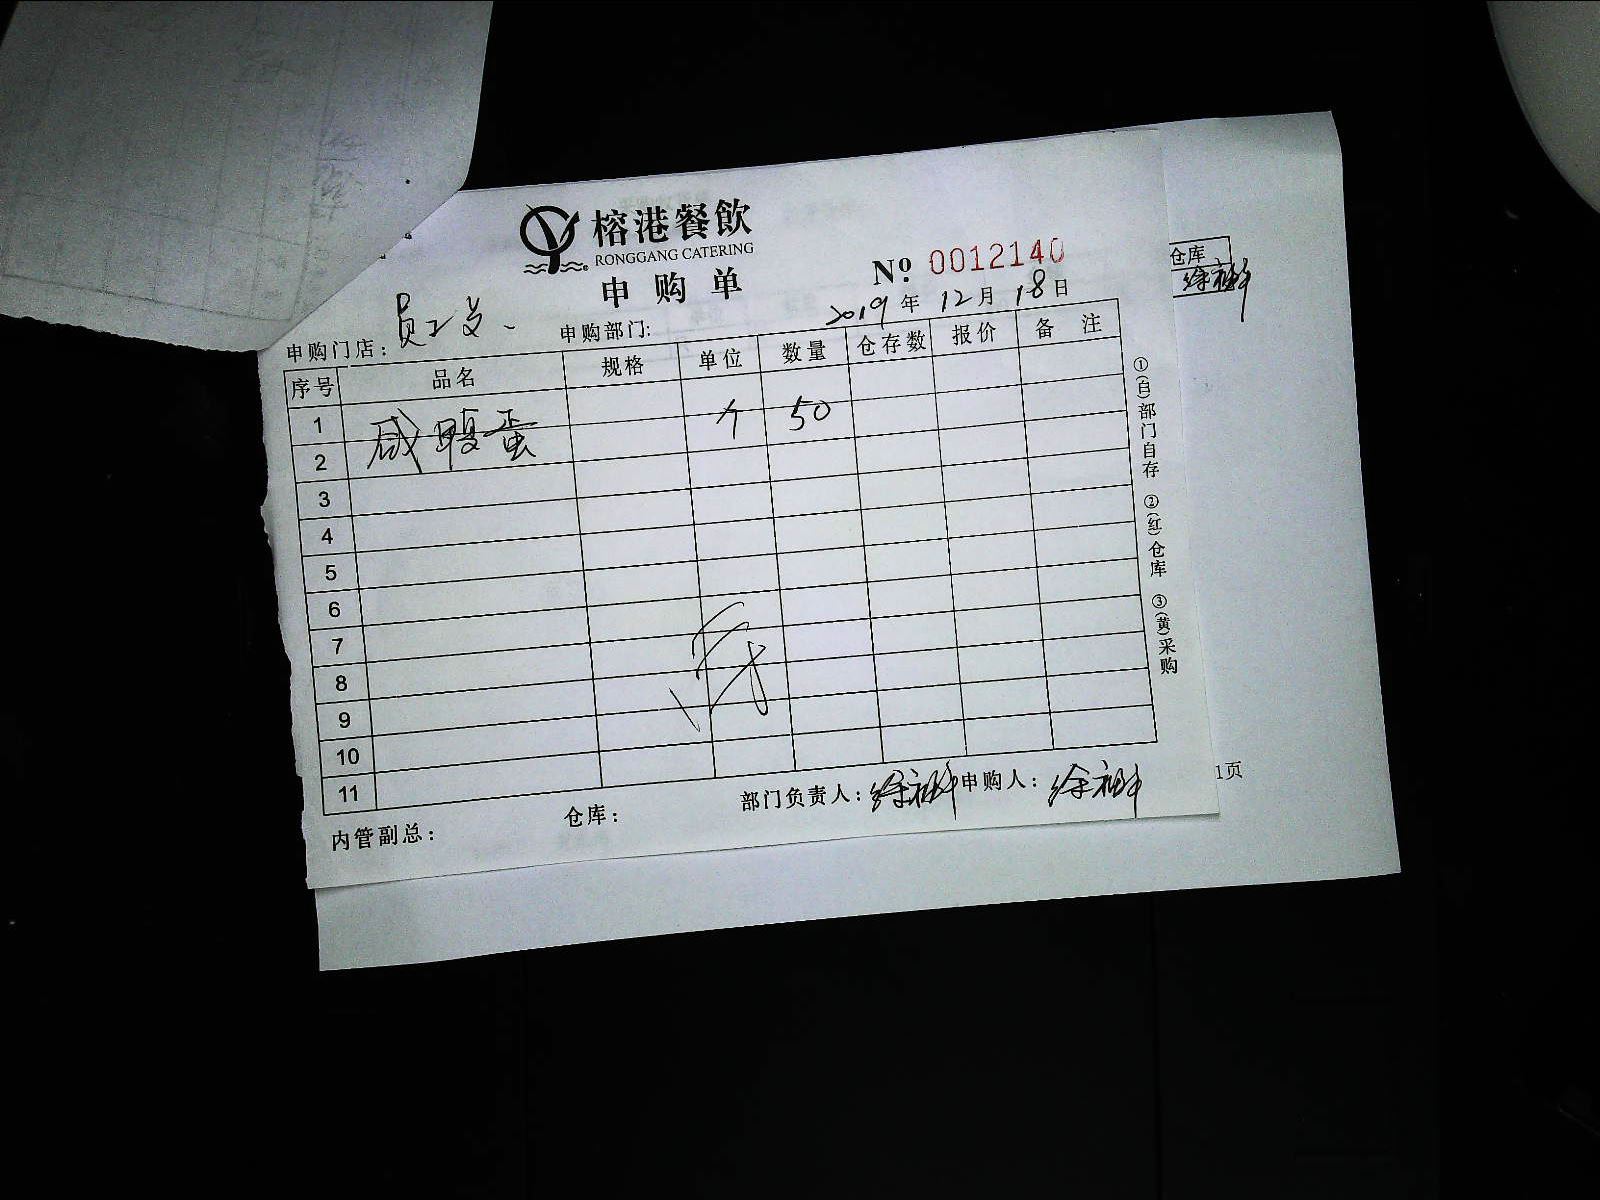 榕港餐飲
RONGGANG CATERING
申购单
№ 0012140
2019年12月18日
申购门店：员工
申购部门:
序号 品名 规格 单位 数量 仓存数 报价 备注
1 咸鸭蛋 个 50
2
3
4
5
6
7
8
9
10
11
内管副总：
仓库：
部门负责人：徐
申购人：徐
①(白)部门自存 ②(红)仓库 ③(黄)采购
仓库
徐
1页